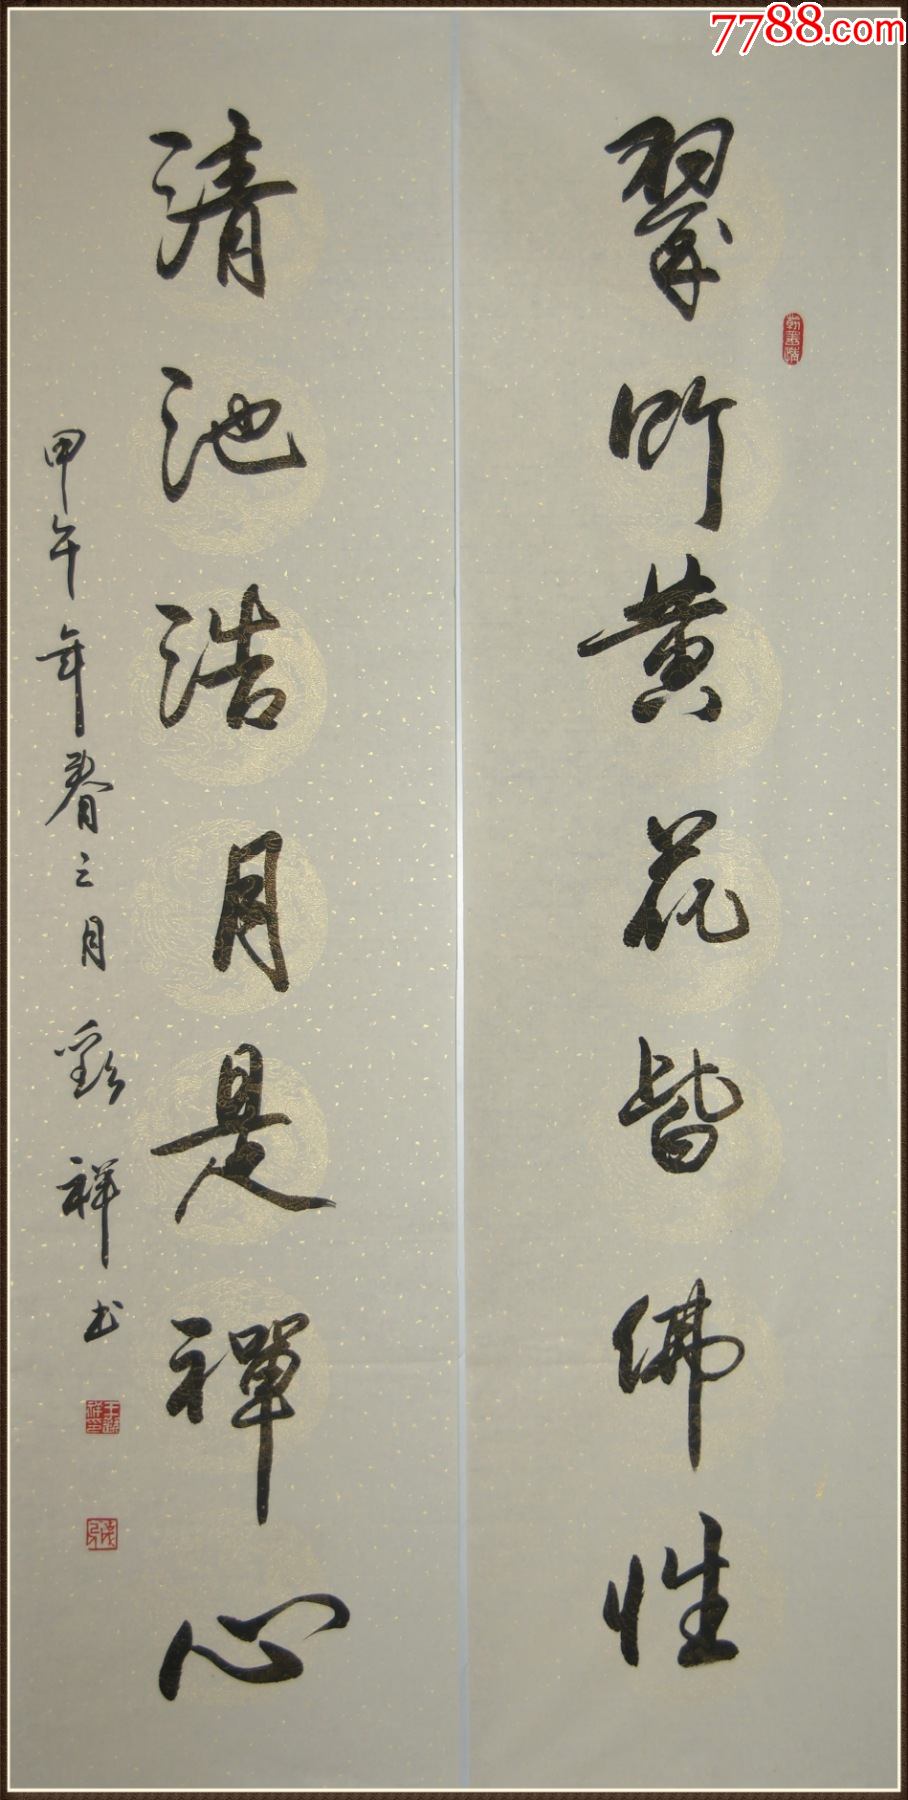 7788.com
翠竹黄花皆佛性
清池浩月是禅心
甲午年春三月
祥书